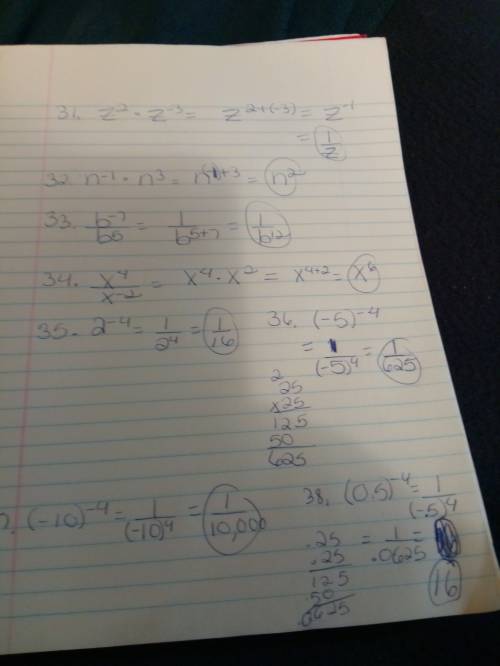 31. z² · z⁻³ = z²⁺⁽⁻³⁾ = z⁻¹
= 1/z
32. n⁻¹ · n³ = n⁽⁻¹⁾⁺³ = n²
33. b⁻⁷/b⁵ = 1/b⁵⁺⁷ = 1/b¹²
34. x⁴/x⁻² = x⁴ · x² = x⁴⁺² = x⁶
35. 2⁻⁴ = 1/2⁴ = 1/16
36. (-5)⁻⁴
= 1/(-5)⁴ = 1/625
2
25
x25
125
50
625
7. (-10)⁻⁴ = 1/(-10)⁴ = 1/10,000
38. (0.5)⁻⁴ = 1/(.5)⁴
= 1/.0625 =
16
.25
.25
125
50
.0625